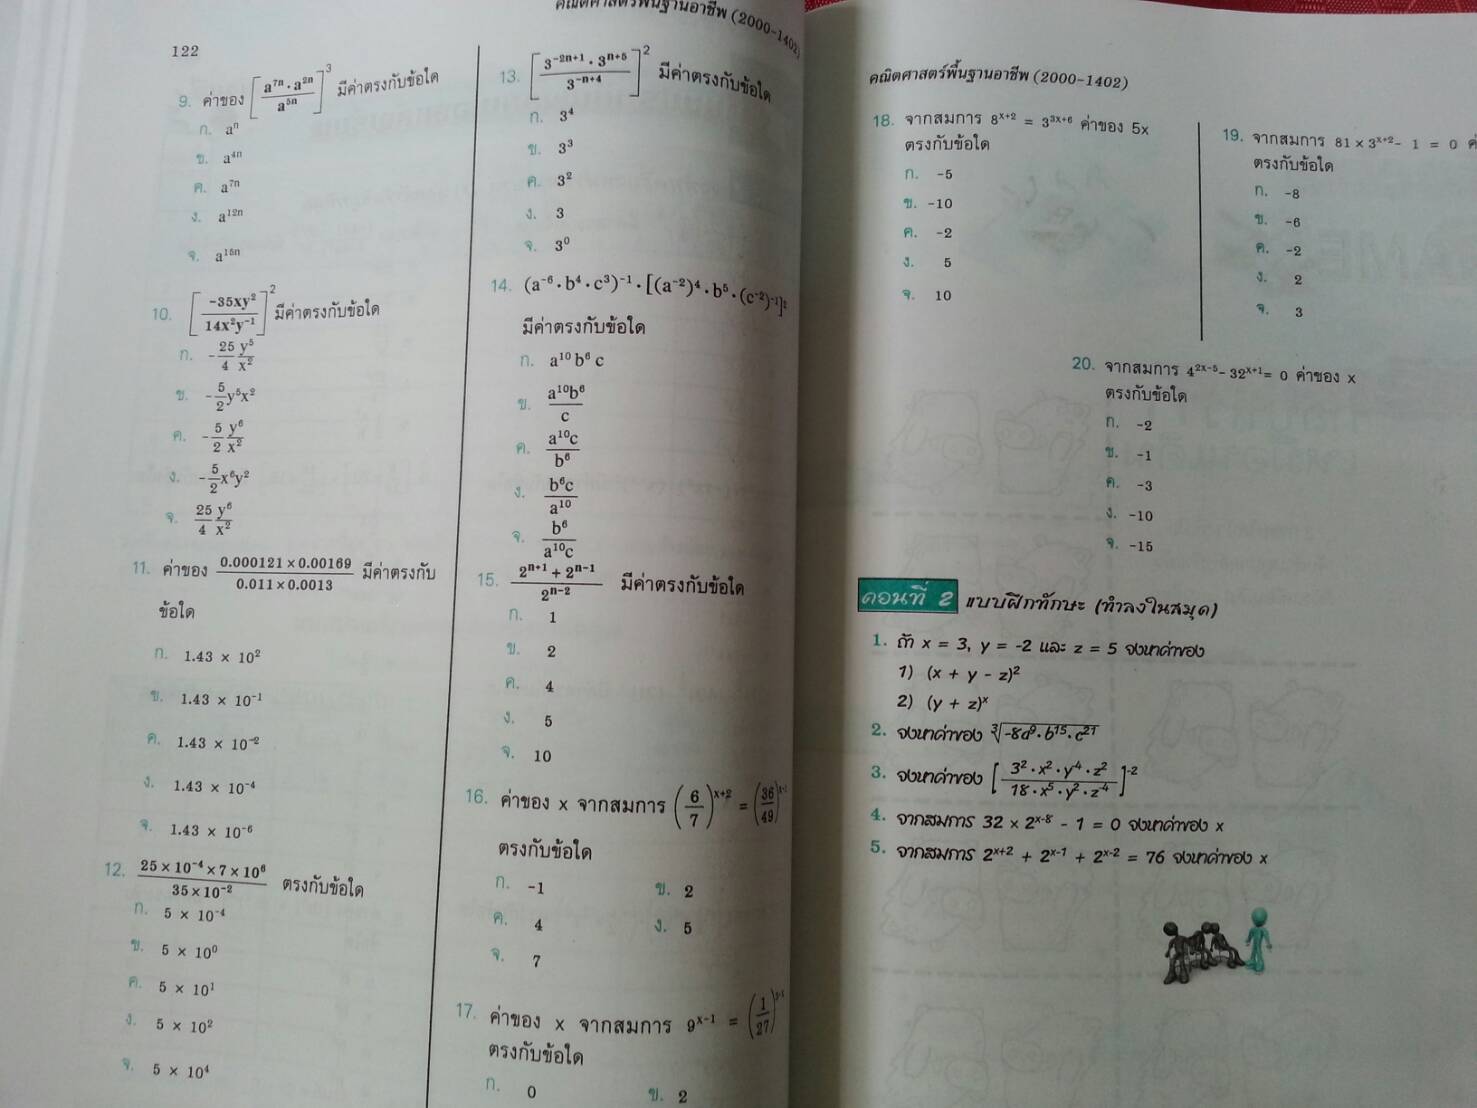 คณิตศาสตร์พื้นฐานอาชีพ (2000-1402)
122
9. ค่าของ [a⁷ⁿ · a²ⁿ / a⁵ⁿ]³ มีค่าตรงกับข้อใด
ก. aⁿ
ข. a⁴ⁿ
ค. a⁷ⁿ
ง. a¹²ⁿ
จ. a¹⁵ⁿ
10. [-35xy² / 14x²y⁻¹]² มีค่าตรงกับข้อใด
ก. -25/4 y⁵/x²
ข. -5/2 y⁵x²
ค. -5/2 y⁶/x²
ง. -5/2 x⁶y²
จ. 25/4 y⁶/x²
11. ค่าของ 0.000121 × 0.00169 / 0.011 × 0.0013 มีค่าตรงกับ
ข้อใด
ก. 1.43 × 10²
ข. 1.43 × 10⁻¹
ค. 1.43 × 10⁻²
ง. 1.43 × 10⁻⁴
จ. 1.43 × 10⁻⁶
12. 25 × 10⁻⁴ × 7 × 10⁶ / 35 × 10⁻² ตรงกับข้อใด
ก. 5 × 10⁻⁴
ข. 5 × 10⁰
ค. 5 × 10¹
ง. 5 × 10²
จ. 5 × 10⁴
13. [3⁻²ⁿ⁺¹ · 3ⁿ⁺⁵ / 3⁻ⁿ⁺⁴]² มีค่าตรงกับข้อใด
ก. 3⁴
ข. 3³
ค. 3²
ง. 3
จ. 3⁰
14. (a⁻⁶ · b⁴ · c³)⁻¹ · [(a⁻²)⁴ · b⁵ · (c⁻²)⁻¹]²
มีค่าตรงกับข้อใด
ก. a¹⁰ b⁶ c
ข. a¹⁰b⁶ / c
ค. a¹⁰c / b⁶
ง. b⁶c / a¹⁰
จ. b⁶ / a¹⁰c
15. 2ⁿ⁺¹ + 2ⁿ⁻¹ / 2ⁿ⁻² มีค่าตรงกับข้อใด
ก. 1
ข. 2
ค. 4
ง. 5
จ. 10
16. ค่าของ x จากสมการ (6/7)ˣ⁺² = (36/49)ˣ⁻¹
ตรงกับข้อใด
ก. -1 ข. 2
ค. 4 ง. 5
จ. 7
17. ค่าของ x จากสมการ 9ˣ⁻¹ = (1/27)
ตรงกับข้อใด
ก. 0 ข. 2
คณิตศาสตร์พื้นฐานอาชีพ (2000-1402)
18. จากสมการ 8ˣ⁺² = 3³ˣ⁺⁶ ค่าของ 5x
ตรงกับข้อใด
ก. -5
ข. -10
ค. -2
ง. 5
จ. 10
19. จากสมการ 81 × 3ˣ⁺² - 1 = 0
ตรงกับข้อใด
ก. -8
ข. -6
ค. -2
ง. 2
จ. 3
20. จากสมการ 4²ˣ⁻⁵ - 32ˣ⁺¹ = 0 ค่าของ x
ตรงกับข้อใด
ก. -2
ข. -1
ค. -3
ง. -10
จ. -15
ตอนที่ 2 แบบฝึกทักษะ (ทำลงในสมุด)
1. ถ้า x = 3, y = -2 และ z = 5 จงหาค่าของ
1) (x + y - z)²
2) (y + z)ˣ
2. จงหาค่าของ ∛(-8a⁹ · b¹⁵ · c²¹)
3. จงหาค่าของ [3² · x² · y⁻⁴ · z² / 18 · x⁵ · y² · z⁻⁴]⁻²
4. จากสมการ 32 × 2ˣ⁻⁸ - 1 = 0 จงหาค่าของ x
5. จากสมการ 2ˣ⁺² + 2ˣ⁻¹ + 2ˣ⁻² = 76 จงหาค่าของ x